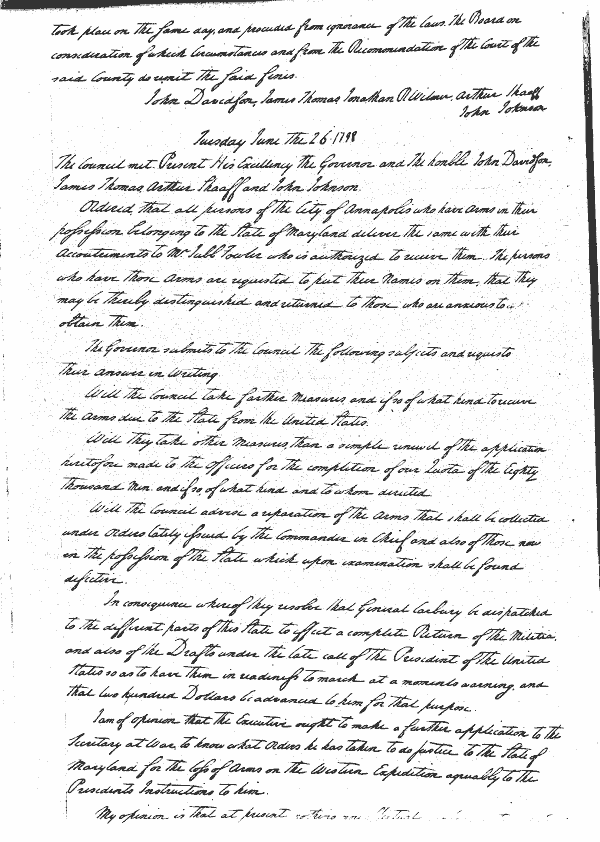 took place on the same day, and proceeded from ignorance of the Laws. The Board on
consideration of which Circumstances and from the Recommendation of the Court of the
said County do remit the said fines.
John Davidson, James Thomas, Jonathan R Wilmer, Arthur Shaaff
John Johnson
Tuesday June the 26 1798
The Council met. Present His Excellency the Governor and the honble John Davidson,
James Thomas Arthur Shaaff and John Johnson.
Ordered, that all persons of the City of Annapolis who have Arms in their
possession belonging to the State of Maryland deliver the same with their
Accoutrements to Mr Jubb Fowler who is authorized to receive them. The persons
who have those Arms are requested to put their Names on them, that they
may be thereby distinguished and returned to those who are anxious to
obtain them.
The Governor submits to the Council the following subjects and requests
their answer in Writing
Will the Council take farther Measures and if so of what kind to receive
the Arms due to the State from the United States.
Will they take other Measures, than a simple renewal of the application
heretofore made to the Officers for the completion of our Quota of the Eighty
thousand Men. and if so of what kind and to whom directed
Will the Council advise a reparation of the Arms that shall be collected
under Orders lately issued by the Commander in Chief and also of those now
in the possession of the State which upon examination shall be found
defective.
In consequence whereof they resolve that General Carbury be dispatched
to the different parts of this State to effect a complete Return of the Militia,
and also of the Drafts under the late call of the President of the United
States so as to have them in readiness to march at a moments warning, and
that two hundred Dollars be advanced to him for that purpose.
I am of opinion that the Executive ought to make a further application to the
Secretary at War, to know what Orders he has taken to do justice to the State of
Maryland for the loss of Arms on the Western Expedition agreeably to the
Presidents Instructions to him.
My opinion is that at present nothing